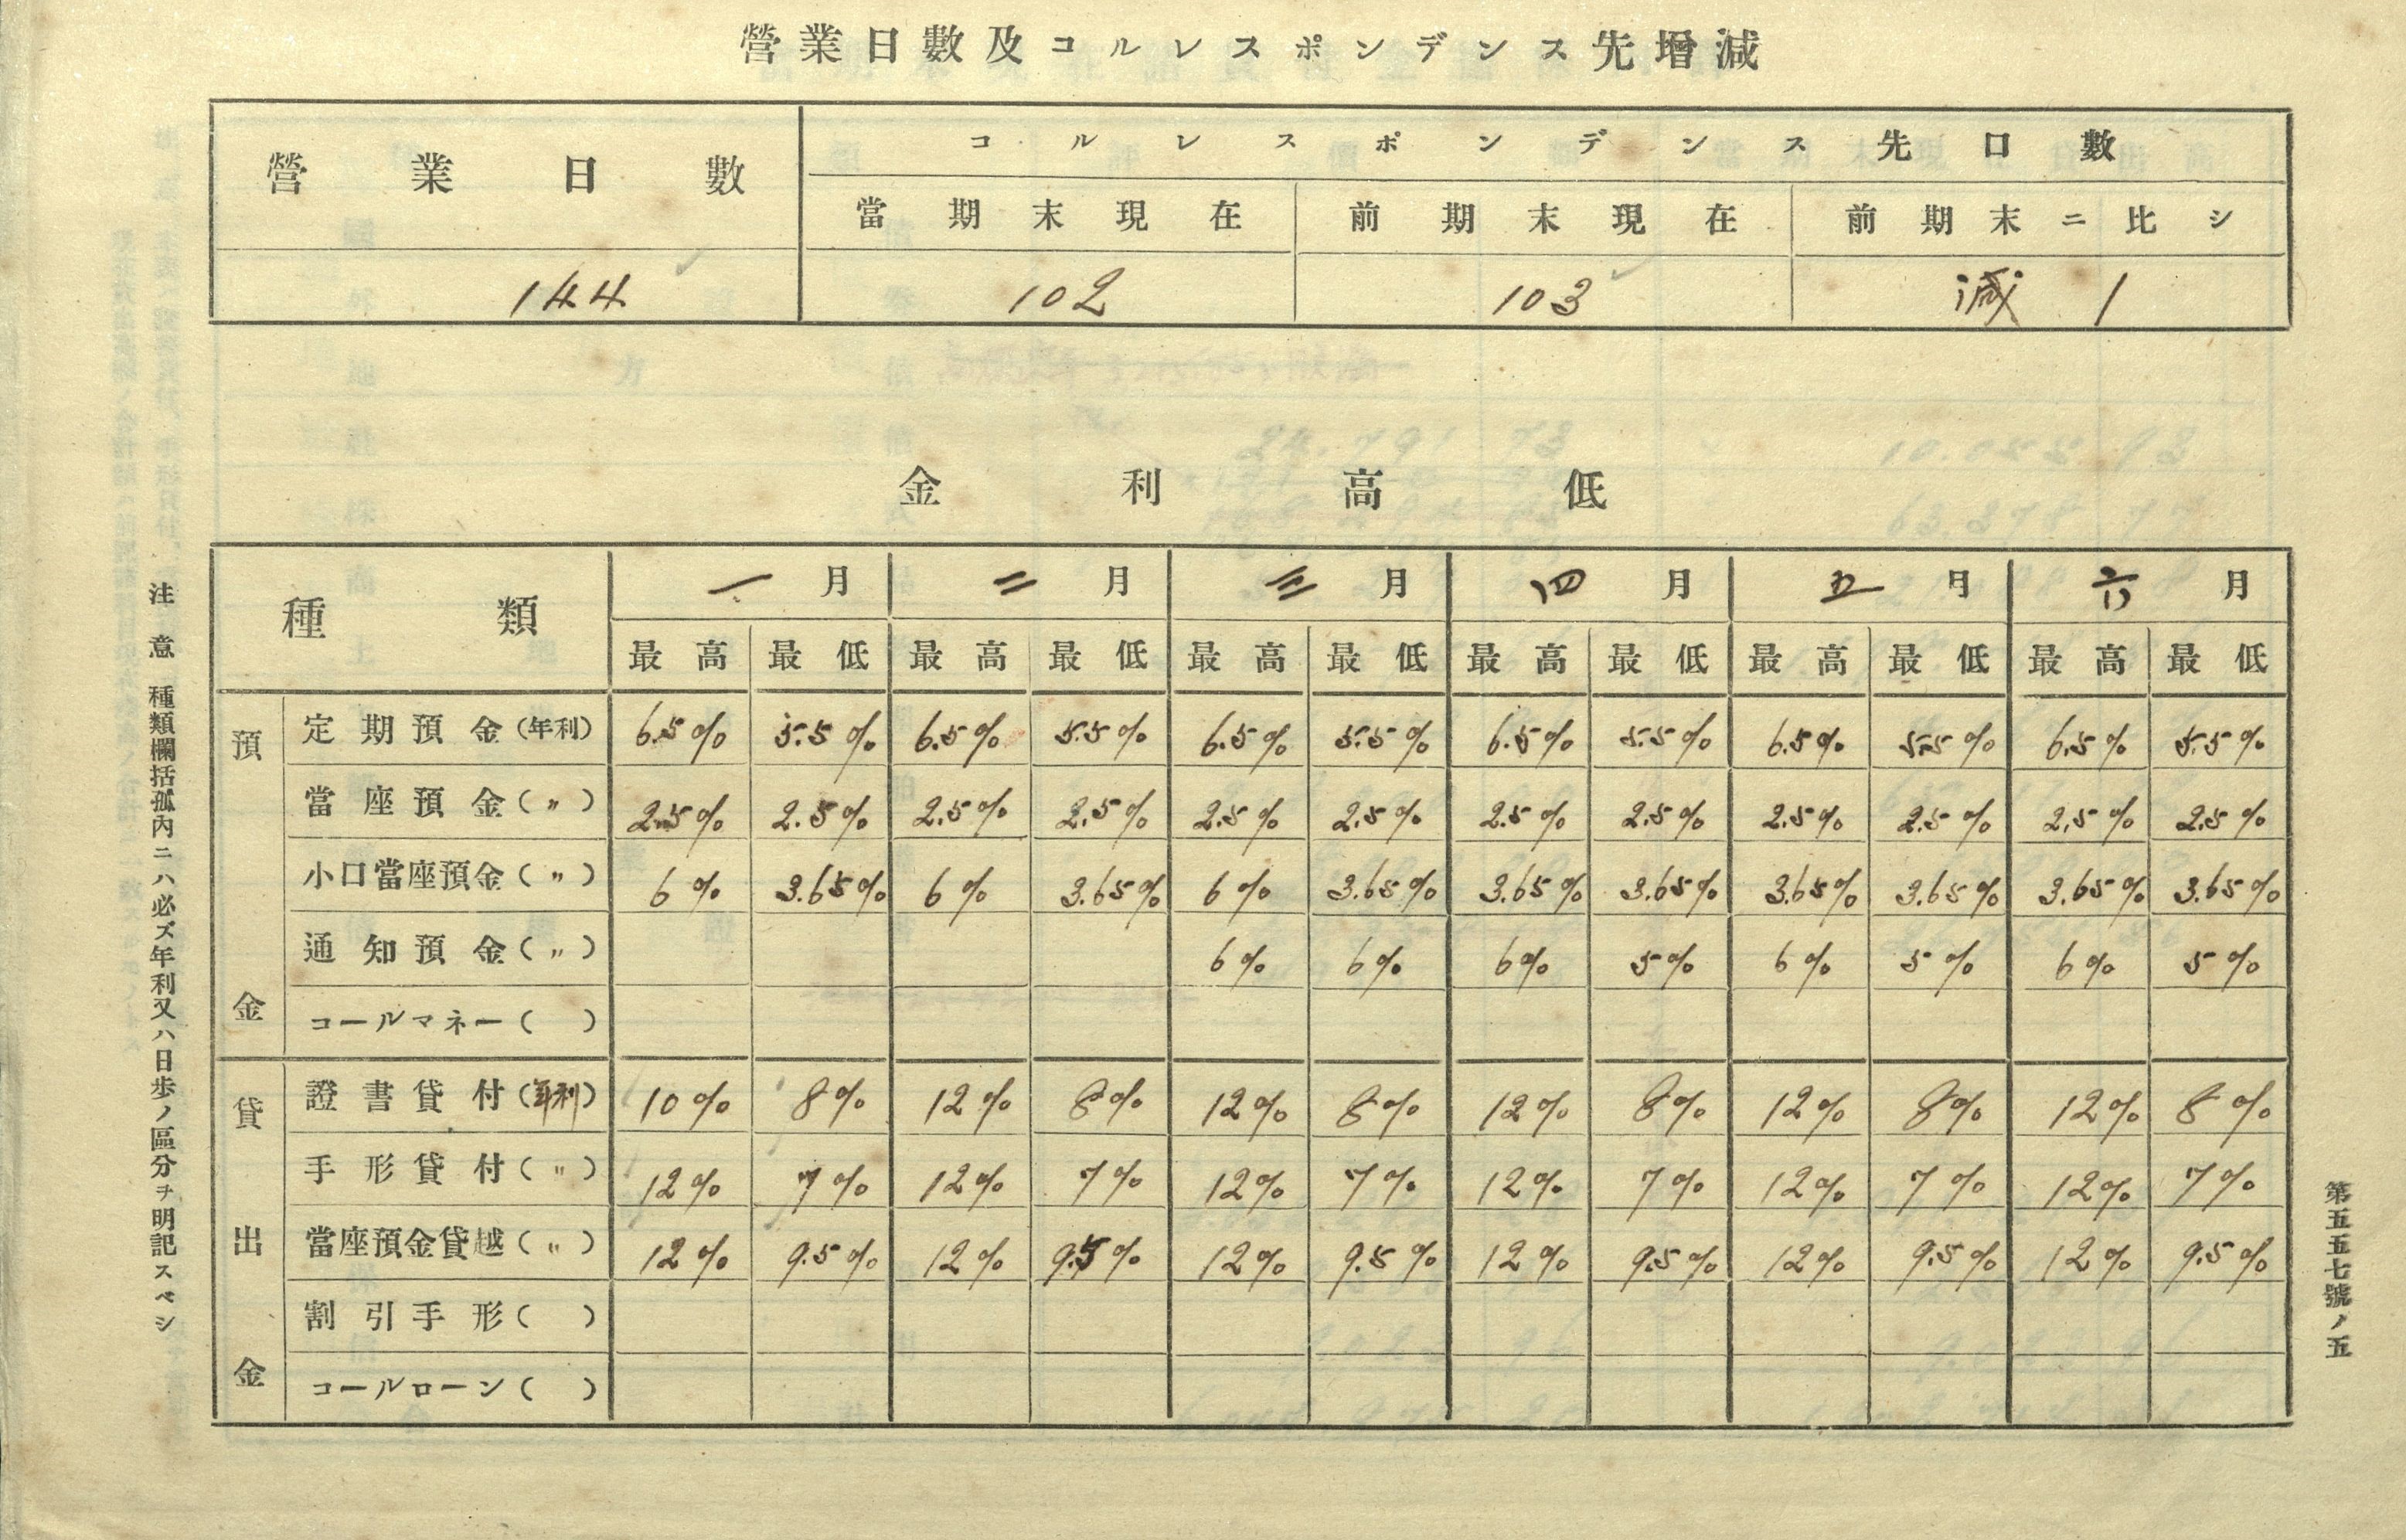 營業日數及コルレスポンデンス先增減
營業日數
コルレスポンデンス先口數
當期末現在 前期末現在 前期末ニ比シ
144 102 103 減 1
金利高低
種類 一月 二月 三月 四月 五月 六月
最高 最低 最高 最低 最高 最低 最高 最低 最高 最低 最高 最低
預金
定期預金(年利) 6.5% 5.5% 6.5% 5.5% 6.5% 5.5% 6.5% 5.5% 6.5% 5.5% 6.5% 5.5%
當座預金(〃) 2.5% 2.5% 2.5% 2.5% 2.5% 2.5% 2.5% 2.5% 2.5% 2.5% 2.5% 2.5%
小口當座預金(〃) 6% 3.65% 6% 3.65% 6% 3.65% 3.65% 3.65% 3.65% 3.65% 3.65% 3.65%
通知預金(〃) 6% 6% 6% 5% 6% 5% 6% 5%
コールマネー( )
貸出金
證書貸付(年利) 10% 8% 12% 8% 12% 8% 12% 8% 12% 8% 12% 8%
手形貸付(〃) 12% 7% 12% 7% 12% 7% 12% 7% 12% 7% 12% 7%
當座預金貸越(〃) 12% 9.5% 12% 9.5% 12% 9.5% 12% 9.5% 12% 9.5% 12% 9.5%
割引手形( )
コールローン( )
注意 種類欄括孤內ニハ必ズ年利又ハ日步ノ區分ヲ明記スベシ
第五五七號ノ五